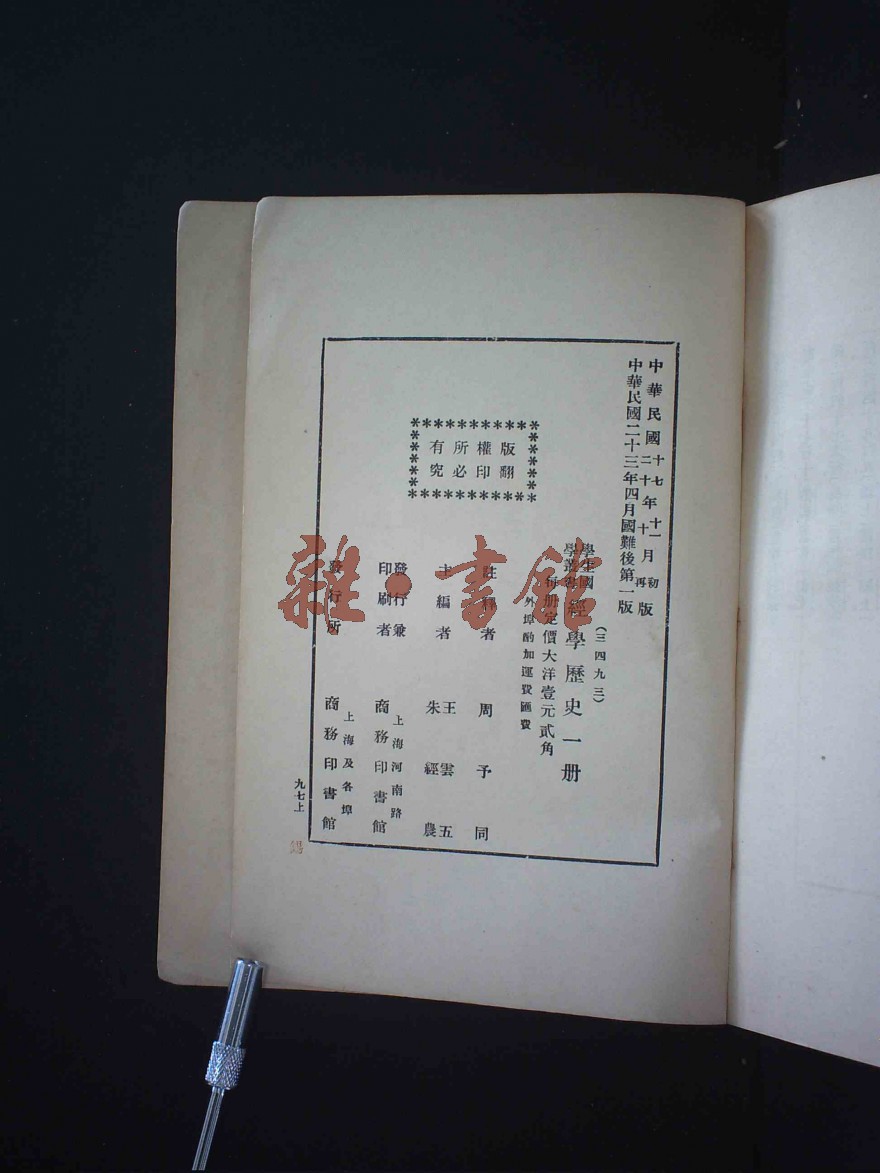 中華民國十七年十一月初版
中華民國二十年十月再版
中華民國二十三年四月國難後第一版
(三四九三)
學生國學叢書 經學歷史一册
每册定價大洋壹元貳角
外埠酌加運費匯費
版權所有
翻印必究
註釋者 周予同
主編者 王雲五
朱經農
發行兼印刷者 上海河南路
商務印書館
發行所 上海及各埠
商務印書館
九七上
雜·書館